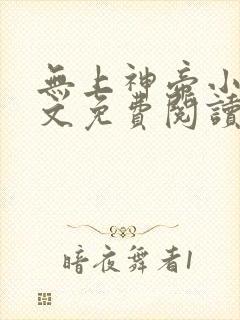 無上神帝小
文免費閱讀
暗夜舞者1